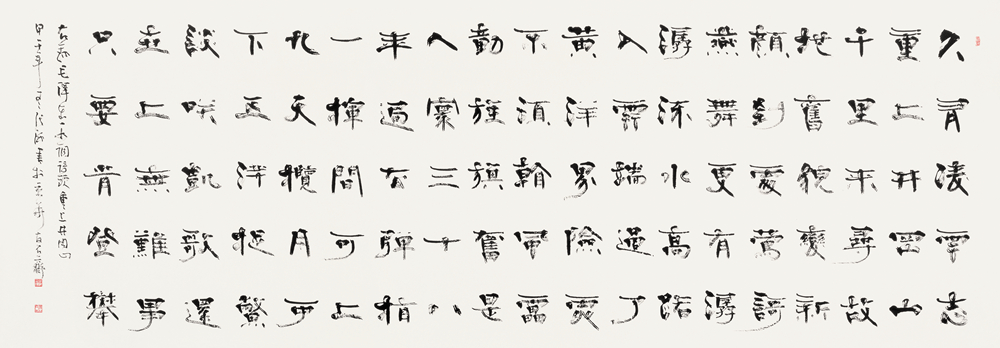 久有凌雲志
重上井岡山
千里來尋故
地舊貌變新
顏到處鶯歌
燕舞更有潺
潺流水高路
入雲端過了
黃洋界險處
不須看風雷
動旌旗奮是
人寰三十八
年過去彈指
一揮間可上
九天攬月可
下五洋捉鱉
談笑凱歌還
世上無難事
只要肯登攀
右錄毛澤東水調歌頭重上井岡山
甲午年